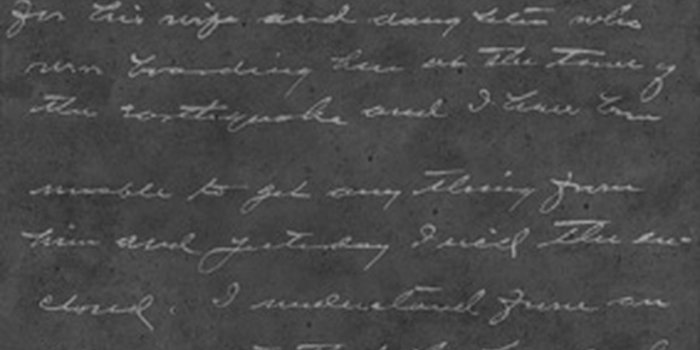 for his wife and daughter who
were boarding here at the time of
the earthquake and I have been
unable to get any thing from
him and yesterday I rec'd the en-
closed. I understand from an